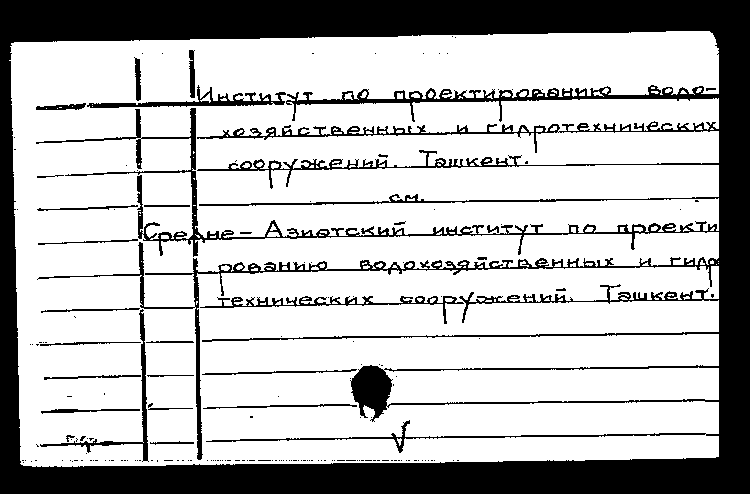 Институт по проектированию водо-
хозяйственных и гидротехнических
сооружений. Ташкент.
см.
Средне-Азиатский институт по проекти
рованию водохозяйственных и гидро
технических сооружений. Ташкент.